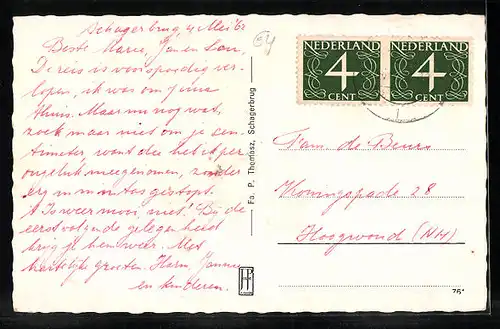 Schagerbrug 4 Mei '62
Beste Marie, Jan en Lou,
De reis is voorspoedig ver-
lopen, ik was om 7 uur
thuis. Maar nu nog wat,
zoek maar niet om je cen-
timeter, want die heb ik per
ongeluk meegenomen, zonder
erg in m'n tas gestopt.
't Is weer mooi, niet! Bij de
eerst volgende gelegenheid
krijg je hem weer. Met
hartelijke groeten Harm, Jannie
en kinderen.
Fa. P. Thomasz, Schagerbrug
NEDERLAND
4
CENT
NEDERLAND
4
CENT
Fam. de Beurs
Koningspade 28
Hoogwoud (NH)
76¹